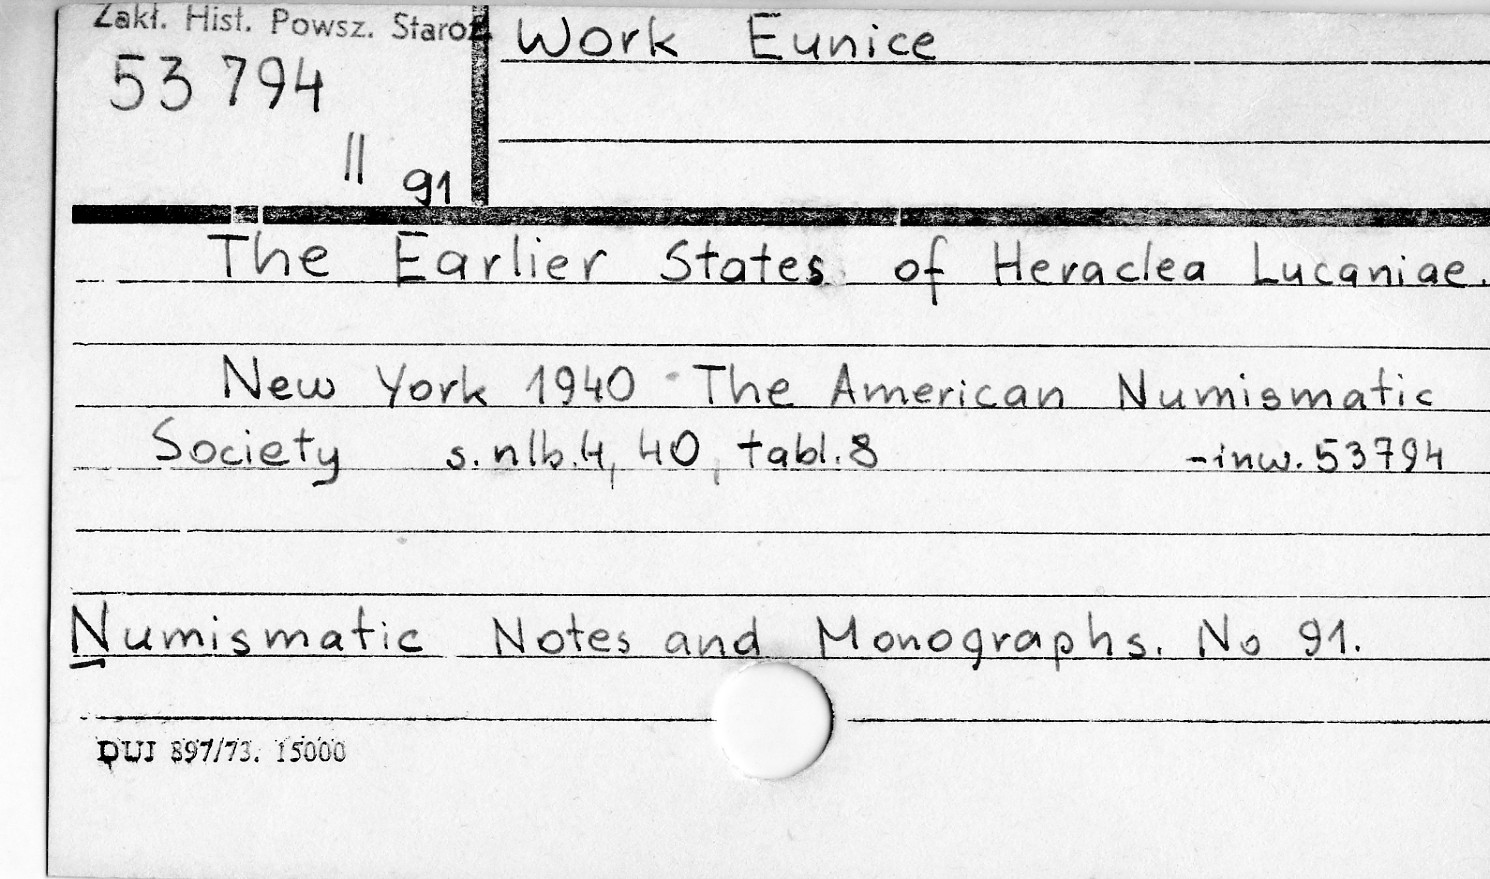 Zakł. Hist. Powsz. Staroż.
53 794
II 91
Work Eunice
The Earlier States of Heraclea Lucaniae.
New York 1940 The American Numismatic
Society s. nlb. 4, 40, tabl. 8 -inw. 53794
Numismatic Notes and Monographs. No 91.
DUJ 897/73. 15000